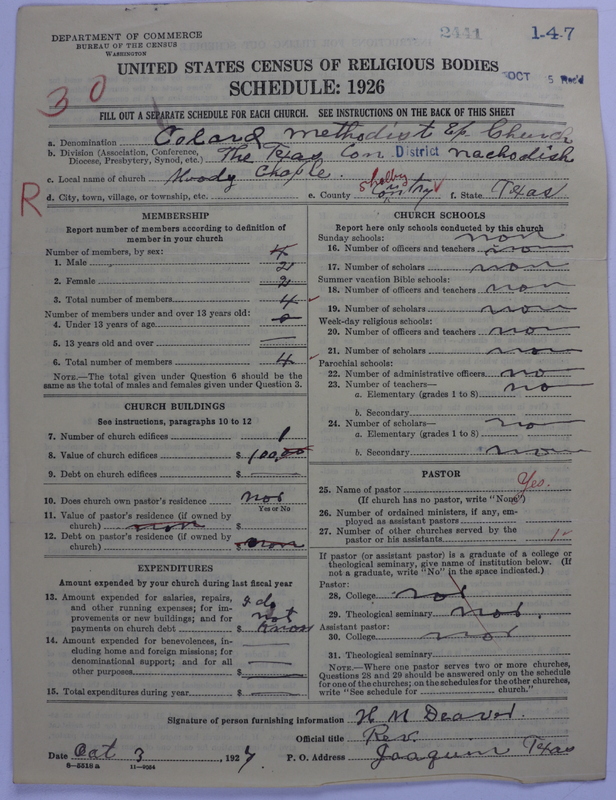 DEPARTMENT OF COMMERCE
BUREAU OF THE CENSUS
WASHINGTON
2441
1-4-7
UNITED STATES CENSUS OF RELIGIOUS BODIES
SCHEDULE: 1926
OCT 5 Rec'd
30
FILL OUT A SEPARATE SCHEDULE FOR EACH CHURCH. SEE INSTRUCTIONS ON THE BACK OF THIS SHEET
a. Denomination Colard Methodist Ep. Church
b. Division (Association, Conference, Diocese, Presbytery, Synod, etc.) The Texas Con. District Nachodish
c. Local name of church Moody Chaple.
R
d. City, town, village, or township, etc. e. County Shelby Contry f. State Texas
MEMBERSHIP
Report number of members according to definition of member in your church
Number of members, by sex: 4
1. Male 2
2. Female 2
3. Total number of members 4
Number of members under and over 13 years old:
4. Under 13 years of age 0
5. 13 years old and over
6. Total number of members 4
NOTE.—The total given under Question 6 should be the same as the total of males and females given under Question 3.
CHURCH BUILDINGS
See instructions, paragraphs 10 to 12
7. Number of church edifices 1
8. Value of church edifices $ 100.00
9. Debt on church edifices $
10. Does church own pastor's residence non
Yes or No
11. Value of pastor's residence (if owned by church) non $
12. Debt on pastor's residence (if owned by church) $ non
EXPENDITURES
Amount expended by your church during last fiscal year
13. Amount expended for salaries, repairs, and other running expenses; for improvements or new buildings; and for payments on church debt $ I do not know
14. Amount expended for benevolences, including home and foreign missions; for denominational support; and for all other purposes $
15. Total expenditures during year $
CHURCH SCHOOLS
Report here only schools conducted by this church
Sunday schools: non
16. Number of officers and teachers non
17. Number of scholars non
Summer vacation Bible schools:
18. Number of officers and teachers non
19. Number of scholars non
Week-day religious schools:
20. Number of officers and teachers non
21. Number of scholars non
Parochial schools:
22. Number of administrative officers no
23. Number of teachers— no
a. Elementary (grades 1 to 8)
b. Secondary
24. Number of scholars— no
a. Elementary (grades 1 to 8)
b. Secondary non
PASTOR
25. Name of pastor Yes.
(If church has no pastor, write "None")
26. Number of ordained ministers, if any, employed as assistant pastors
27. Number of other churches served by the pastor or his assistants 1
If pastor (or assistant pastor) is a graduate of a college or theological seminary, give name of institution below. (If not a graduate, write "No" in the space indicated.)
Pastor:
28. College not
29. Theological seminary not.
Assistant pastor:
30. College not
31. Theological seminary
NOTE.—Where one pastor serves two or more churches, Questions 28 and 29 should be answered only on the schedule for one of the churches; on the schedules for the other churches, write "See schedule for church."
Signature of person furnishing information H M Deaver.
Official title Rev.
Date Oct 3 , 1927 P. O. Address Joaquin Texas
6—5518a 11—9054